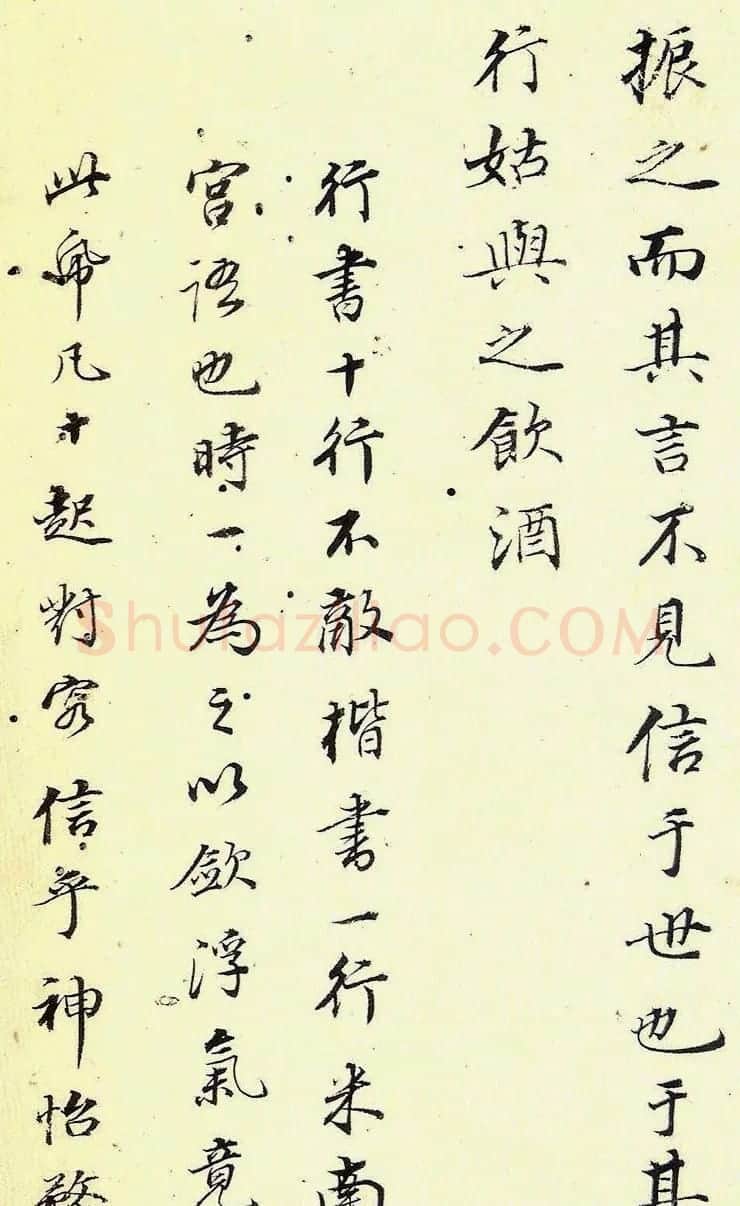 振之而其言不見信于世也于其
行姑與之飲酒
行書十行不敵楷書一行米南
宮語也時一為之以斂浮氣竟
此帋凡十起對客信乎神怡務
Shufaziliao.COM